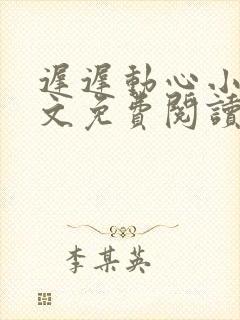 遲遲動心小
文免費閱讀
李某英